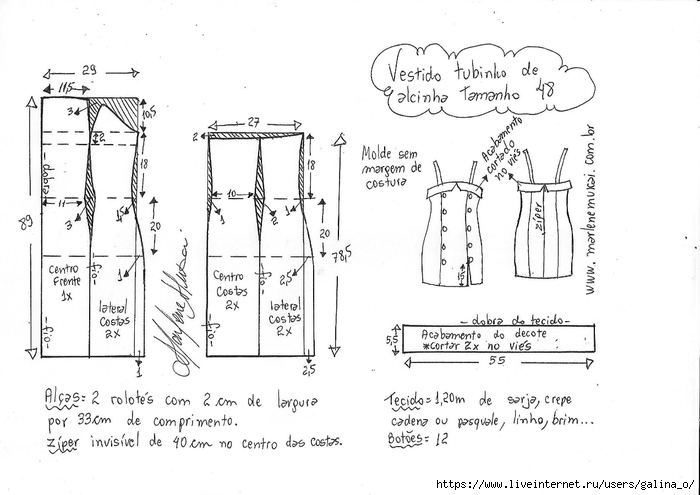 Vestido tubinho de
alcinha Tamanho 48
29
11,5
3
10,5
2
18
dobra
11
3
1,5
89
20
1
-fio-
-fio-
Centro
Frente
1x
lateral
Costas
2x
1
Marlene Mukai
27
2
18
10
1
2
1
20
78,5
2,5
-fio-
-fio-
Centro
Costas
2x
lateral
Costas
2x
2,5
Molde sem
margem de
costura
Acabamento
cortado
no viés
zíper
15
www.marlenemukai.com.br
-dobra do tecido-
5,5
Acabamento do decote
*cortar 2x no viés
55
Alças= 2 rolotês com 2 cm de largura
por 33cm de comprimento.
zíper invisível de 40 cm no centro das costas.
Tecido= 1,20m de sarja, crepe
cadena ou pasquale, linho, brim...
Botões= 12
https://www.liveinternet.ru/users/galina_o/